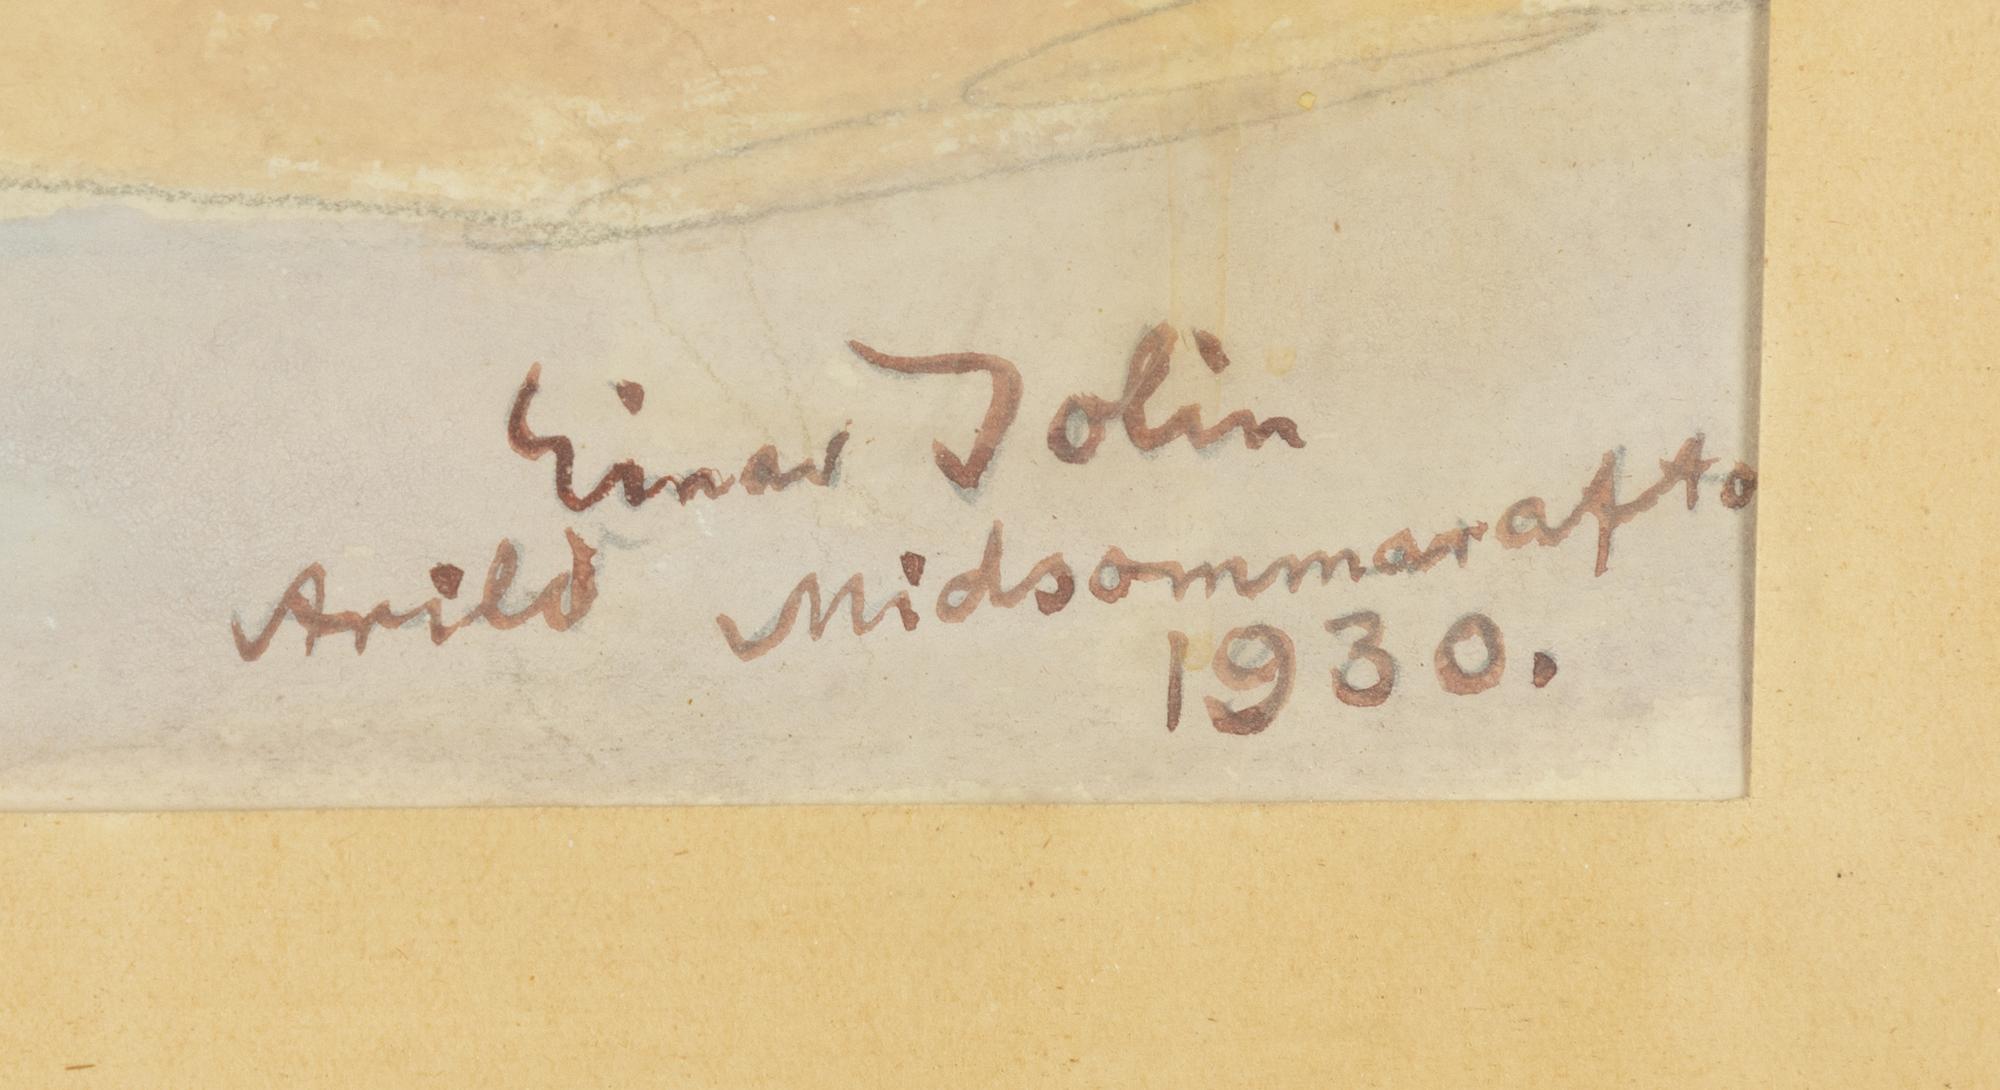 Einar Jolin
Arild Midsommarafto
1930.